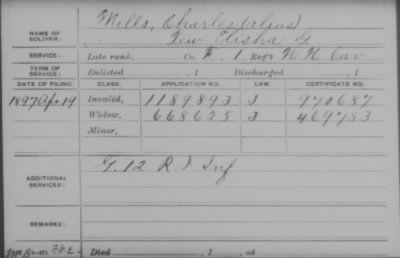 NAME OF SOLDIER: Mills, Charles (alias)
Lew Elisha G
SERVICE: Late rank, Co. F, 1 Reg't N. H. Cav
TERM OF SERVICE: Enlisted , 1 Discharged , 1
DATE OF FILING. CLASS. APPLICATION NO. LAW. CERTIFICATE NO.
1897 Apr 19 Invalid, 1189893 J 970687
Widow, 668625 J 469753
Minor,
ADDITIONAL SERVICES: G. 12 R. I. Inf
REMARKS:
Died , 1 , at